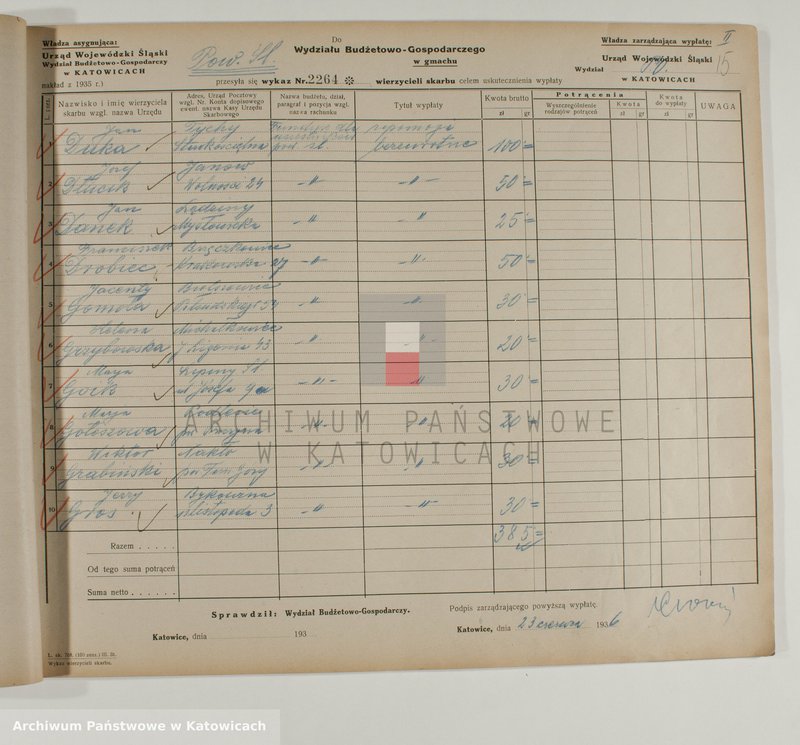 Władza asygnująca:
Urząd Wojewódzki Śląski
Wydział Budżetowo-Gospodarczy
w KATOWICACH
nakład z 1935 r.)
Pow. Śl.
Do
Wydziału Budżetowo-Gospodarczego
w gmachu
przesyła się wykaz Nr. 2264 wierzycieli skarbu celem uskutecznienia wypłaty
Władza zarządzająca wypłatę: II
Urząd Wojewódzki Śląski 15
Wydział
w KATOWICACH
L. porz.
Nazwisko i imię wierzyciela skarbu wzgl. nazwa Urzędu
Adres, Urząd Pocztowy wzgl. Nr. Konta dopisowego ewent. nazwa Kasy Urzędu Skarbowego
Nazwa budżetu, dział, paragraf i pozycja wzgl. nazwa rachunku
Tytuł wypłaty
Kwota brutto
zł gr
Potrącenia
Wyszczególnienie rodzajów potrąceń
Kwota
zł gr
Kwota do wypłaty
zł gr
UWAGA
1 Jan Duka Tychy pow. śl. zapomoga bezzwrotna 100 =
2 Józef Janów Wolności 24 -"- -"- 50 =
3 Jan Danek Lędziny Mysłowicka -"- -"- 25 =
4 Franciszek Drobiec Krakowska 27 -"- -"- 50 =
5 Jacenty Gomola 54 -"- -"- 30 =
6 Helena Grzybowska Michałkowice J. Ligonia 43 -"- -"- 20 =
7 Maria Gock Lipiny Śl. -"- -"- 30 =
8 Maria Gołaszowa -"- -"- 20 =
9 Wiktor Grabiński Nakło -"- -"- 30 =
10 Jerzy Gros Bykowina Listopada 3 -"- -"- 30 =
385 =
Razem . . . . .
Od tego suma potrąceń
Suma netto . . . . . .
Sprawdził: Wydział Budżetowo-Gospodarczy.
Podpis zarządzającego powyższą wypłatę.
Katowice, dnia 193
Katowice, dnia 23 czerwca 1936
Wykaz wierzycieli skarbu.
ARCHIWUM PAŃSTWOWE
W KATOWICACH
Archiwum Państwowe w Katowicach